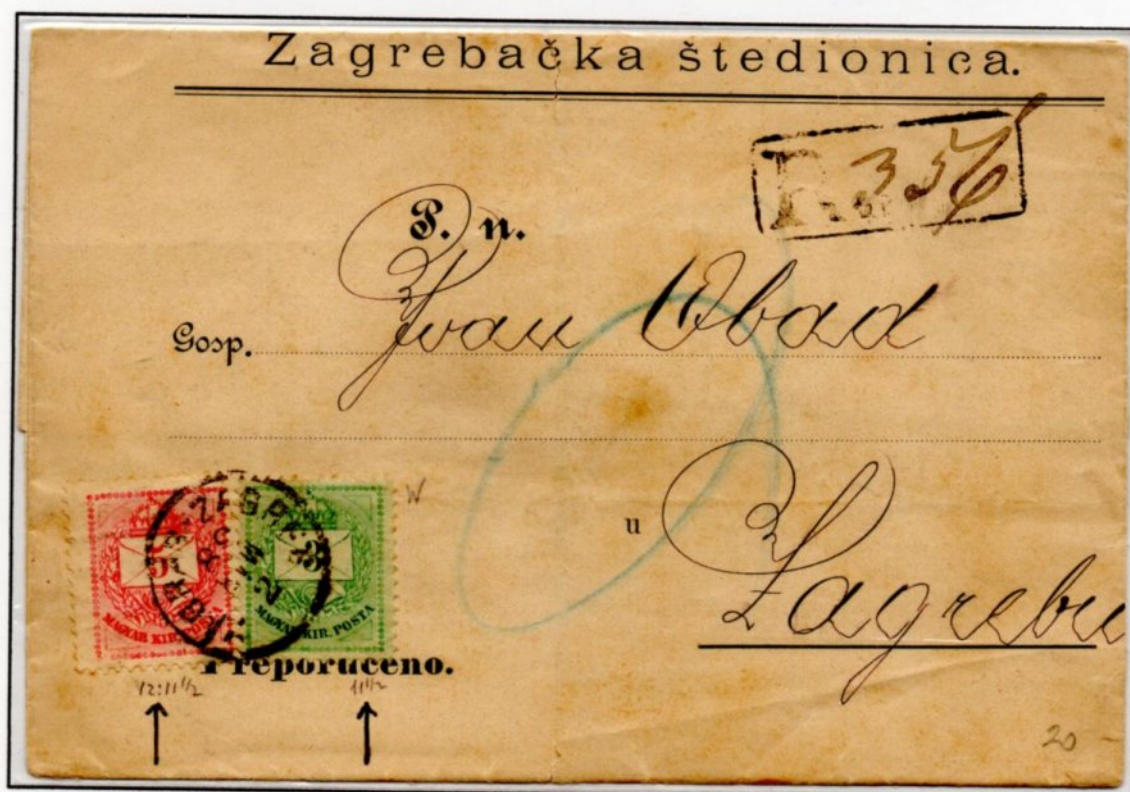 Zagrebačka štedionica.
R 356
P. n.
Gosp. Ivan Obad
u Zagrebu
5 3
MAGYAR KIR. POSTA MAGYAR KIR. POSTA
ZAGREB
Preporuceno.
12:11½ 11½
20 -